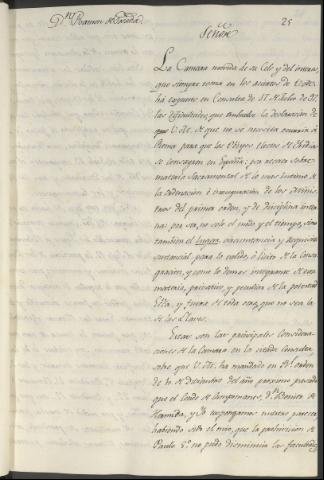 Dn Ramon de Posada.
25
Señor
La Camara movida de su Celo y del interes,
que siempre toma en los aciertos de V.M.
ha expuesto en Consulta de 17. de Julio de 97.
las dificultades, que embaraza la declaracion de
que V.M. de que no se necesita ocurrir á
Roma para que los Obispos Electos de Indias
se consagren en España; por ser esta
materia Sacramental de lo mas intimo de
la ordenacion é inauguracion de los Minis-
tros del primer orden, y de disciplina inter-
na: por esta, no solo el modo y el tiempo, sino
tambien el lugar, circunstancia y requisito
substancial para lo valido, ó licito de la Consa-
gracion, y como lo demas integrante de esta
materia, privativo y peculiar de la potestad
Ella, y fuera de toda otra, que no sea la
de las Llaves.
Estas son las principales considera-
ciones de la Camara en la citada Consulta
sobre que V.M. ha mandado en Rl. orden
de 10. de Diciembre del año proximo pasado
que el Conde de Campomanes, Dn Benito de
Hermida, y Yo expongamos nuestro parecer
habiendo sido el mio, que la prohivicion de
Paulo 5º no pudo disminuir las facultades